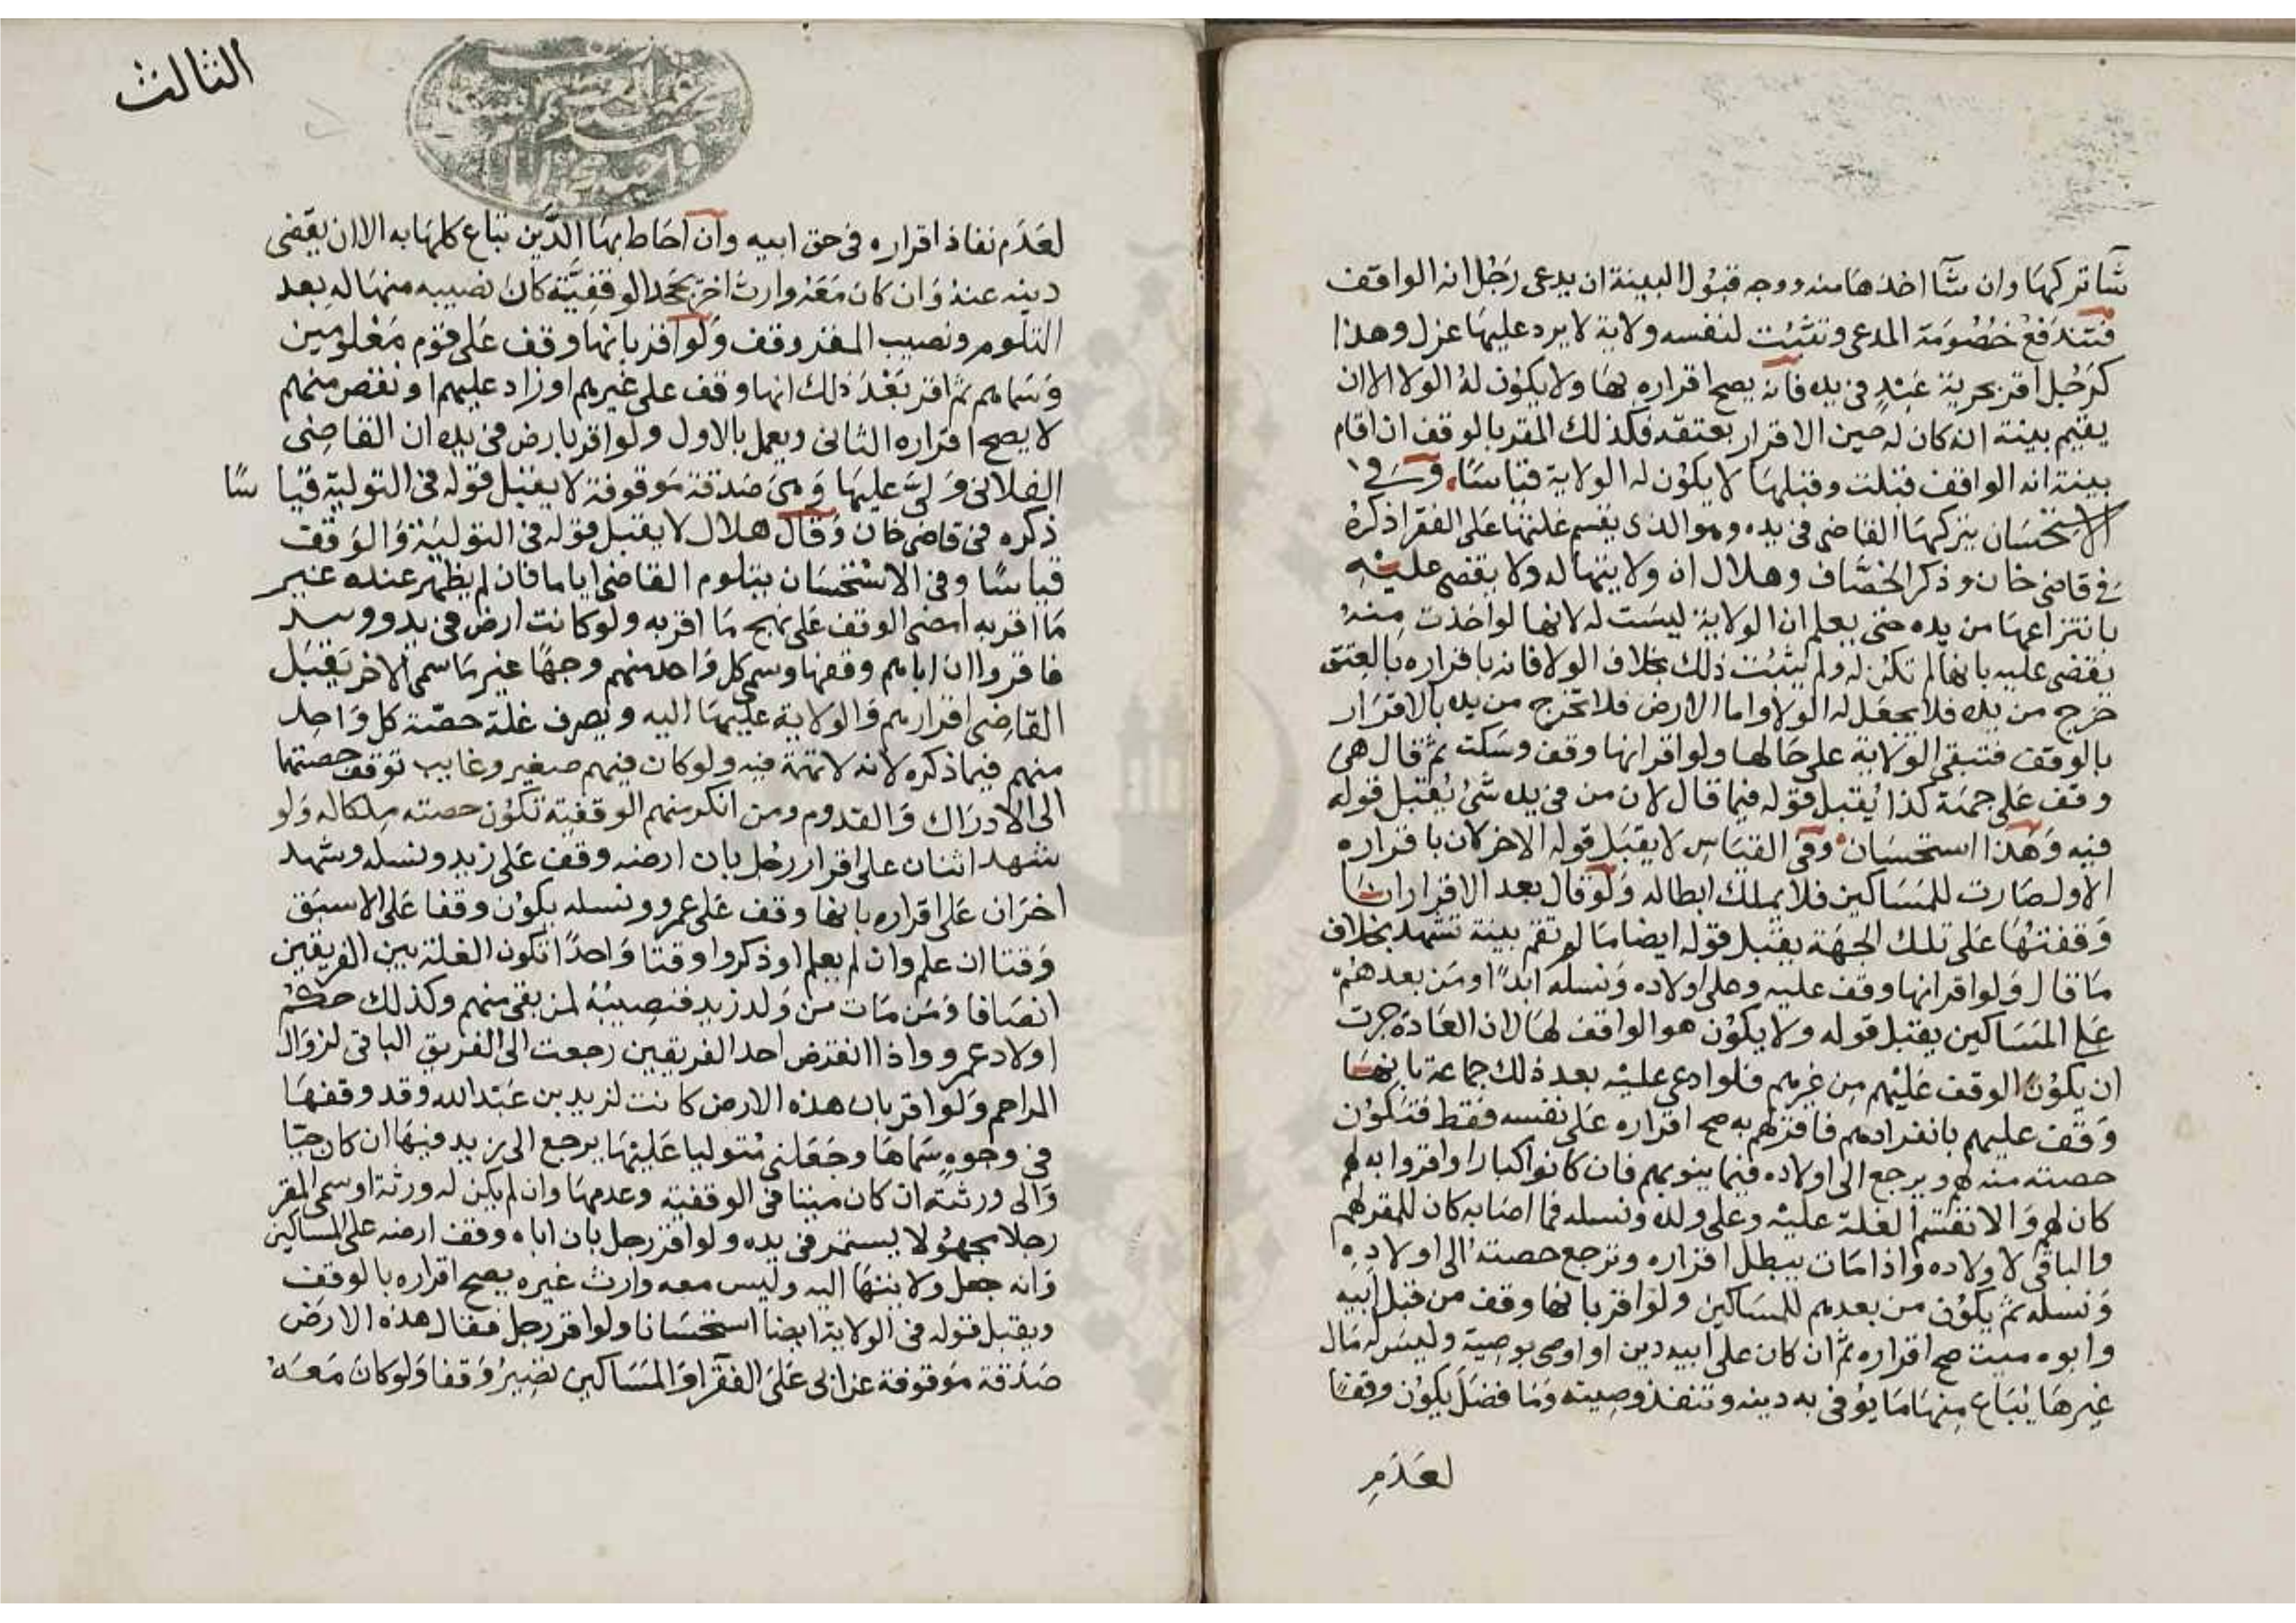 شآ تركها وان شآ اخذها منه ووجه قبول البينة ان يدعى رجل انه الواقف
فتندفع خصومة المدعى وتثبت لنفسه ولاية لا يرد عليها عزل وهذا
كرجل اقر بحرية عبد فى يده فانه يصح اقراره بها ولا يكون له الولا الا ان
يقيم بينة انه كان له حين الاقرار بعتقه فكذلك المقر بالوقف ان اقام
بينة انه الواقف قبلت وقبلها لا يكون له الولاية قياسا وفى
الاستحسان يتركها القاضى فى يده وهو الذى يقسم غلتها على الفقرا ذكره
فى قاضى خان وذكر الخصاف وهلال ان ولايتها له ولا يقضى عليه
بانتزاعها من يده حتى يعلم ان الولاية ليست له لانها لو اخذت منه
يقضى عليه بانها لم تكن له ولم يثبت ذلك بخلاف الولا فانه باقراره بالعتق
خرج من يده فلا يجعل له الولا واما الارض فلا تخرج من يده بالاقرار
بالوقف فتبقى الولاية على حالها ولو اقر انها وقف وسكت ثم قال هى
وقف على جهة كذا يقبل قوله فيما قال لان من فى يده شى يقبل قوله
فيه وهذا استحسان وفى القياس لا يقبل قوله الاخر لان باقراره
الاول صارت للمساكين فلا يملك ابطاله ولو قال بعد الاقرار انا
وقفتها على تلك الجهة يقبل قوله ايضا ما لم تقم بينة تشهد بخلاف
ما قال ولو اقر انها وقف عليه وعلى اولاده ونسله ابدا ومن بعدهم
على المساكين يقبل قوله ولا يكون هو الواقف لها لان العادة جرت
ان يكون الوقف عليهم من غيرهم فلو ادعى عليه بعد ذلك جماعة بانها
وقف عليهم بانفرادهم فاقر لهم به صح اقراره على نفسه فقط فتكون
حصته منه لهم ويرجع الى اولاده فيما ينوبهم فان كانوا كبارا واقروا به لهم
كان لهم والا تقسم الغلة عليه وعلى ولده ونسله فما اصابه كان للمقر لهم
والباقى لاولاده واذا مات يبطل اقراره وترجع حصته الى اولاده
ونسله ثم يكون من بعدهم للمساكين ولو اقر بانها وقف من قبل ابيه
وابوه ميت صح اقراره ثم ان كان على ابيه دين او اوصى بوصية وليس له مال
غيرها يباع منها ما يوفى به دينه وتنفذ وصيته وما فضل يكون وقفا
لعدم
الثالث
لعدم نفاذ اقراره فى حق ابيه وان احاط بها الدين تباع كلها به الا ان يقضى
دينه عنه وان كان معه وارث اخر يجحد الوقفية كان نصيبه منها له بعد
التلوم ونصيب المقر وقف ولو اقر بانها وقف على قوم معلومين
وسماهم ثم اقر بعد ذلك انها وقف على غيرهم او زاد عليهم او نقص منهم
لا يصح اقراره الثانى ويعمل بالاول ولو اقر بارض فى يده ان القاضى
الفلانى ولى عليها وهى صدقة موقوفة لا يقبل قوله فى التولية قياسا
ذكره فى قاضى خان وقال هلال لا يقبل قوله فى التولية والوقف
قياسا وفى الاستحسان يتلوم القاضى اياما فان لم يظهر عنده غير
ما اقر به امضى الوقف على نهج ما اقر به ولو كانت ارض فى يد وورسد
فاقروا ان اباهم وقفها وسمى كل واحد منهم وجها غير ما سمى الاخر يقبل
القاضى اقرارهم والولاية عليها اليه ويصرف غلة حصة كل واحد
منهم فيما ذكره لانه لا تهمة فيه ولو كان فيهم صغير وغايب توقف حصتهما
الى الادراك والقدوم ومن انكر منهم الوقفية تكون حصته ملكا له ولو
شهد اثنان على اقرار رجل بان ارضه وقف على زيد ونسله وشهد
اخران على اقراره بانها وقف على عمرو ونسله يكون وقفا على الاسبق
وقتا ان علم وان لم يعلم او ذكروا وقتا واحدا تكون الغلة بين الفريقين
انصافا ومن مات من ولد زيد فنصيبه لمن بقى منهم وكذلك حكم
اولاد عمرو واذا انقرض احد الفريقين رجعت الى الفريق الباقى لزوال
المزاحم ولو اقر بان هذه الارض كانت لزيد بن عبد الله وقد وقفها
فى وجوه سماها وجعلنى متوليا عليها يرجع الى زيد فيها ان كان حيا
والى ورثته ان كان ميتا فى الوقفية وعدمها وان لم يكن له ورثة او سمى المقر
رجلا مجهولا يستمر فى يده ولو اقر رجل بان اباه وقف ارضه على المساكين
وانه جعل ولايتها اليه وليس معه وارث غيره يصح اقراره بالوقف
ويقبل قوله فى الولاية ايضا استحسانا ولو اقر رجل فقال هذه الارض
صدقة موقوفة عن ابى على الفقرا والمساكين تصير وقفا ولو كان معه